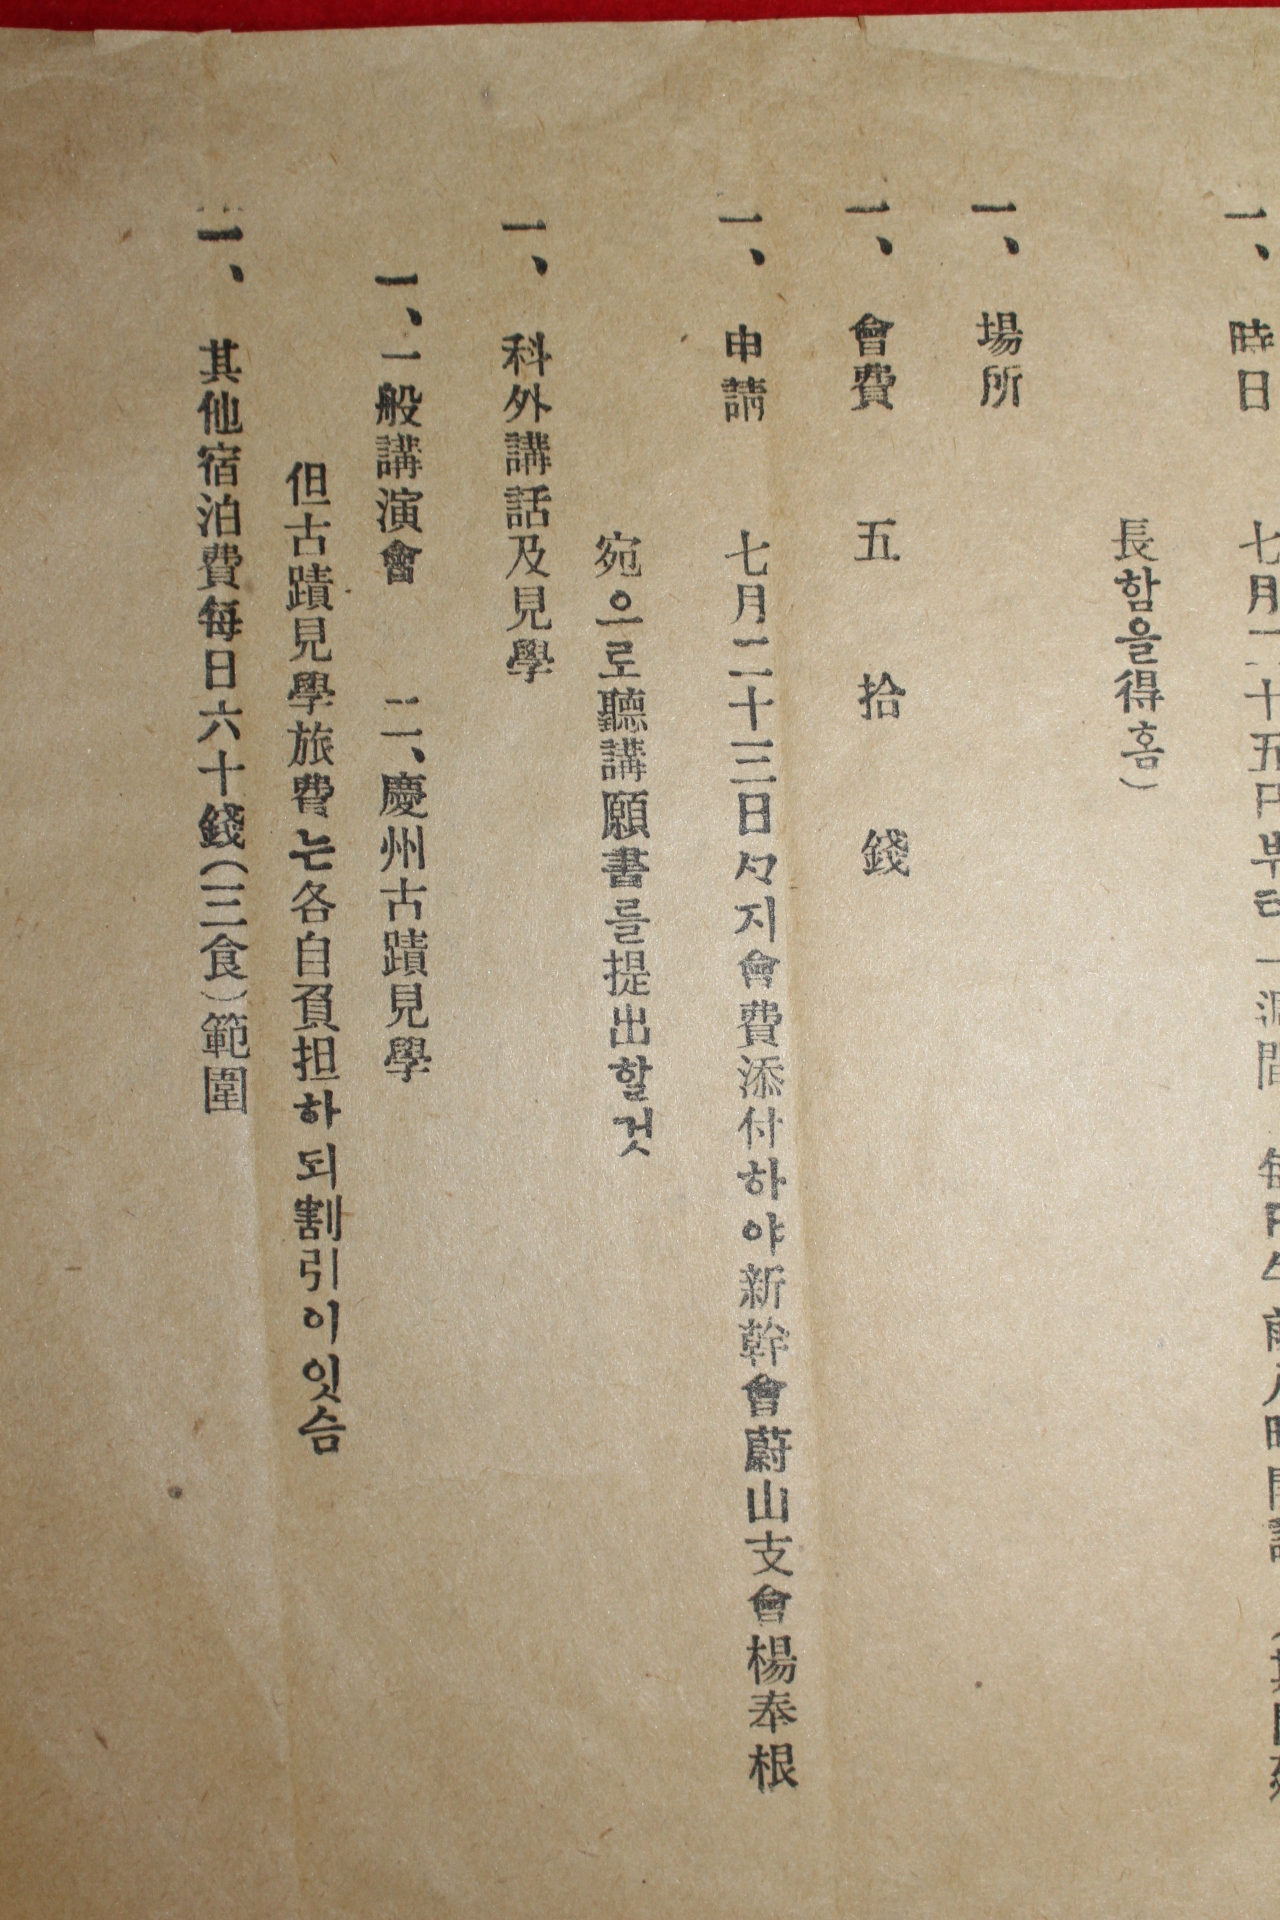 一、時日 七月二十五日부터一週間 每日午前八時開講
長함을得홈)
一、場所
一、會費 五拾錢
一、申請 七月二十三日ᄭ지會費添付하야新幹會蔚山支會楊奉根
宛으로聽講願書를提出할것
一、科外講話及見學
一、一般講演會 二、慶州古蹟見學
但古蹟見學旅費는各自負担하되割引이잇슴
一、其他宿泊費每日六十錢(三食)範圍